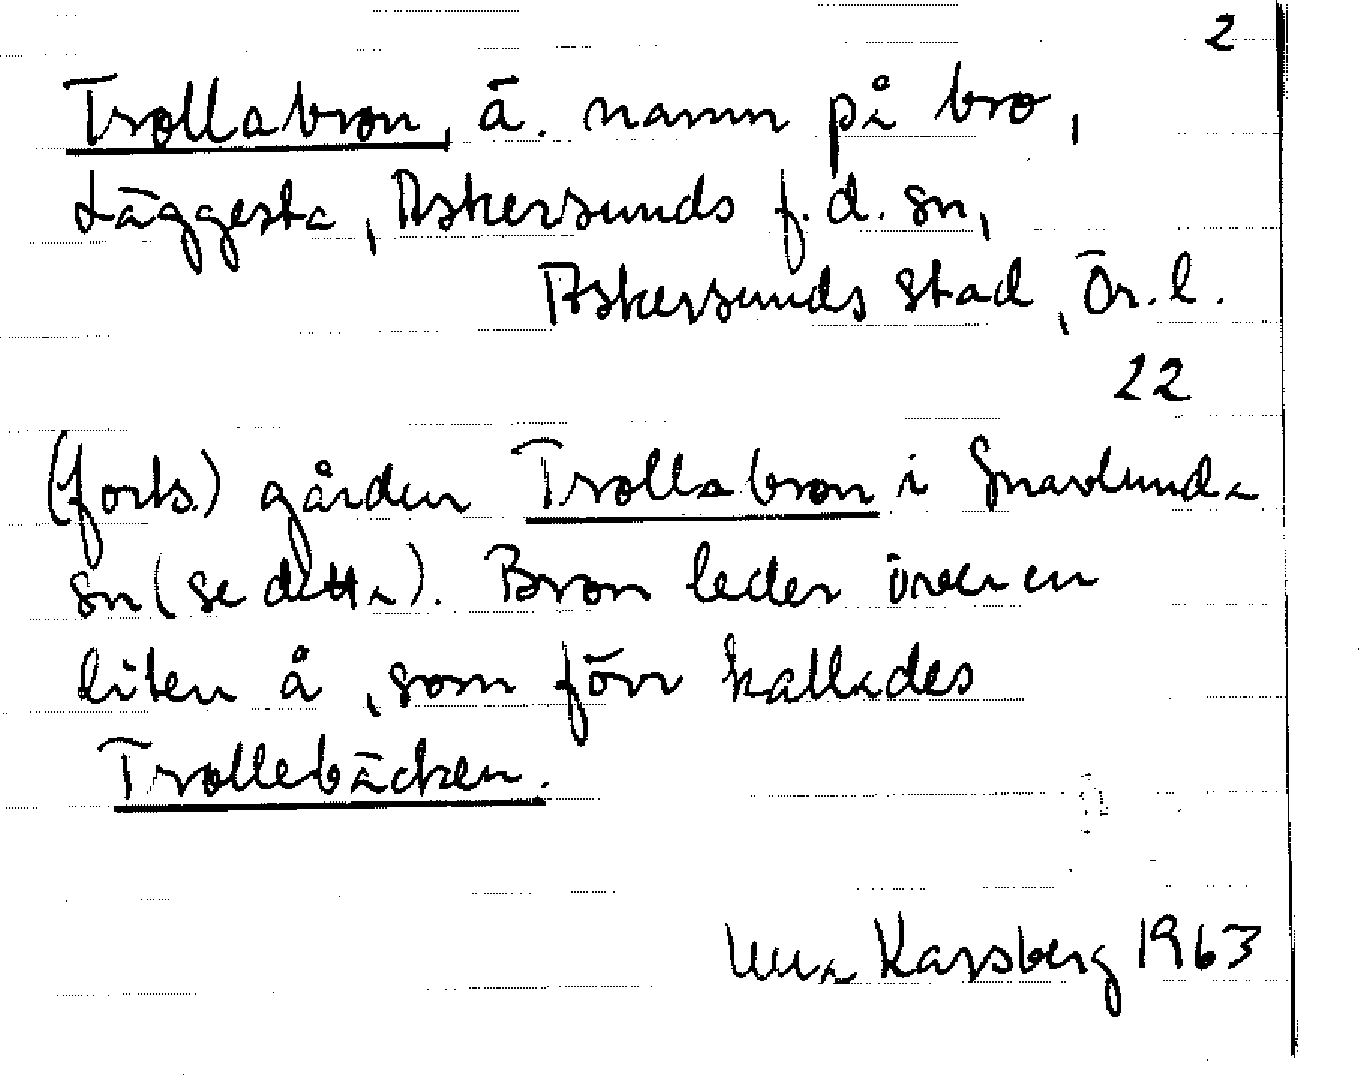 2
Trollabron, ä. namn på bro,
Läggesta, Askersunds f.d. sn,
Askersunds stad, Ör.l.
22
(forts.) gården Trollabron i Snavlunda
sn (se detta). Bron leder över en
liten å, som förr kallades
Trollebäcken.
Karsberg 1963